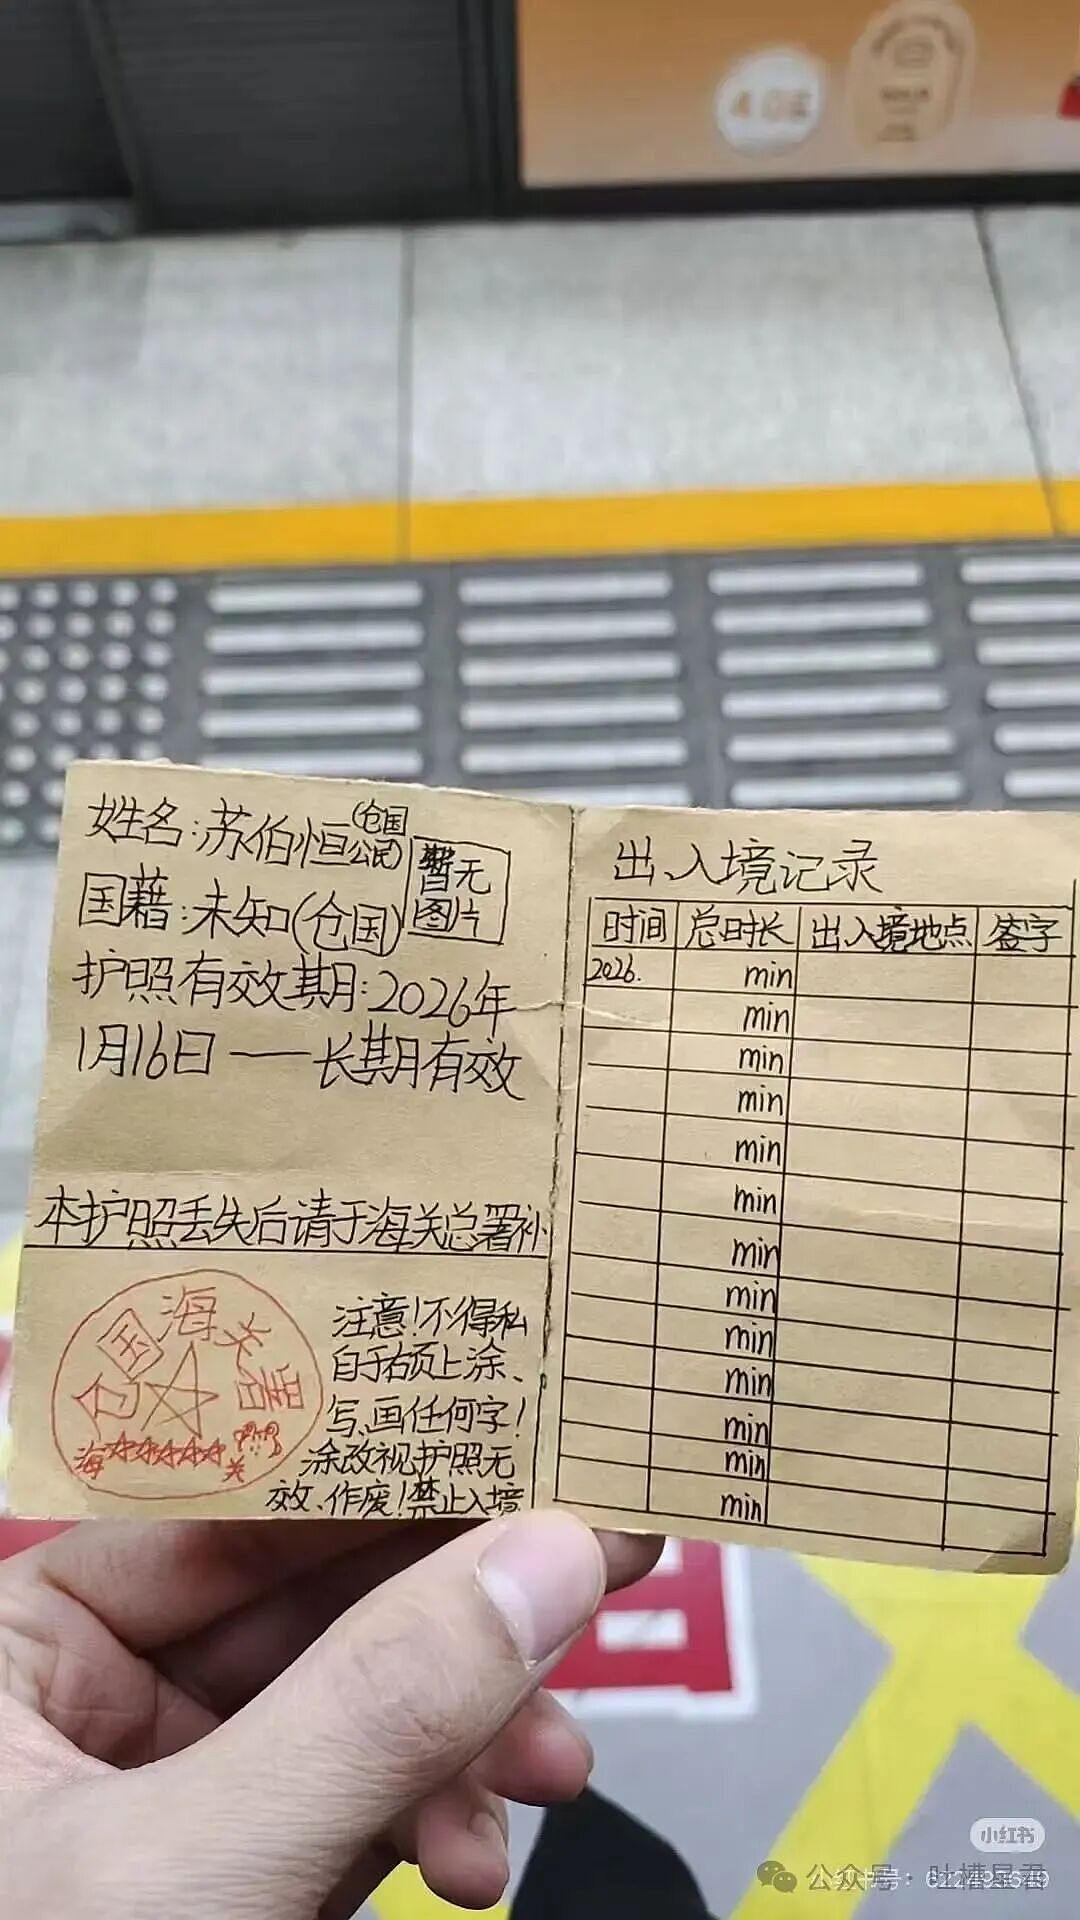 姓名:苏伯恒(仓国公民)
暂无
图片
国藉:未知(仓国)
护照有效期:2026年
1月16日——长期有效
本护照丢失后请于海关总署补
仓国海关署
海 关
注意!不得私
自于右页上涂、
写、画任何字!
涂改视护照无
效、作废!禁止入境
出入境记录
时间 总时长 出入境地点 签字
2026. min
min
min
min
min
min
min
min
min
min
min
min
min
小红书
公众号:吐槽星君